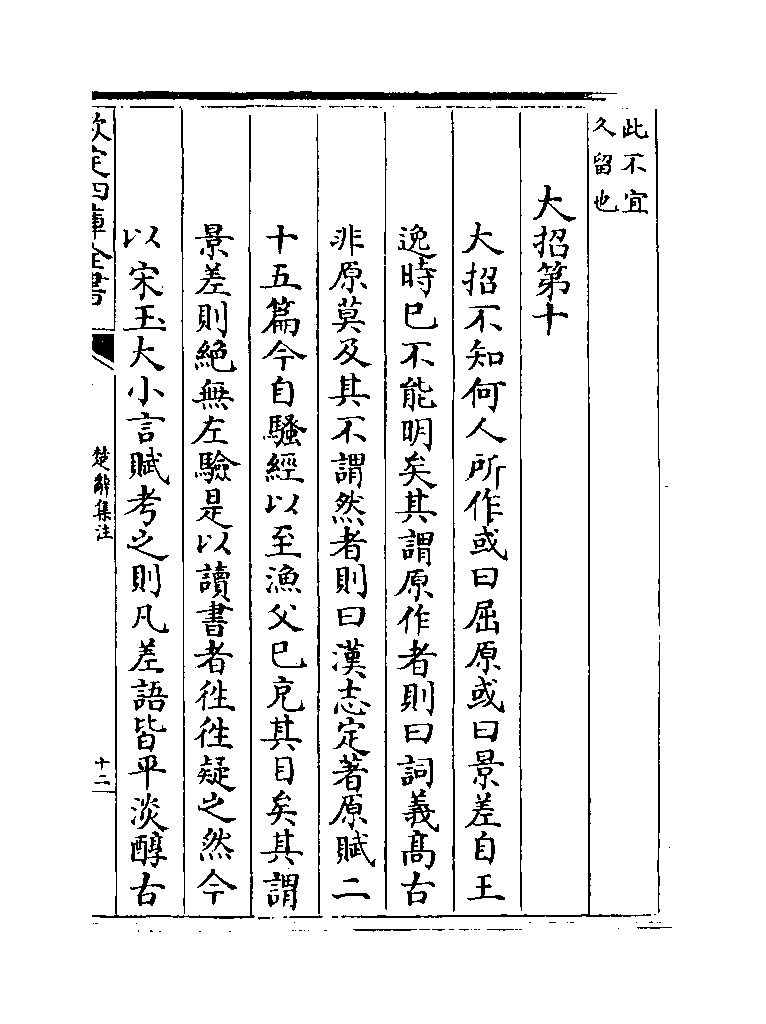 此不宜
久留也
大招第十
大招不知何人所作或曰屈原或曰景差自王
逸時已不能明矣其謂原作者則曰詞義髙古
非原莫及其不謂然者則曰漢志定著原賦二
十五篇今自騷經以至漁父已充其目矣其謂
景差則絶無左驗是以讀書者徃徃疑之然今
以宋玉大小言賦考之則凡差語皆平淡醇古
欽定四庫全書
楚辭集注
十二